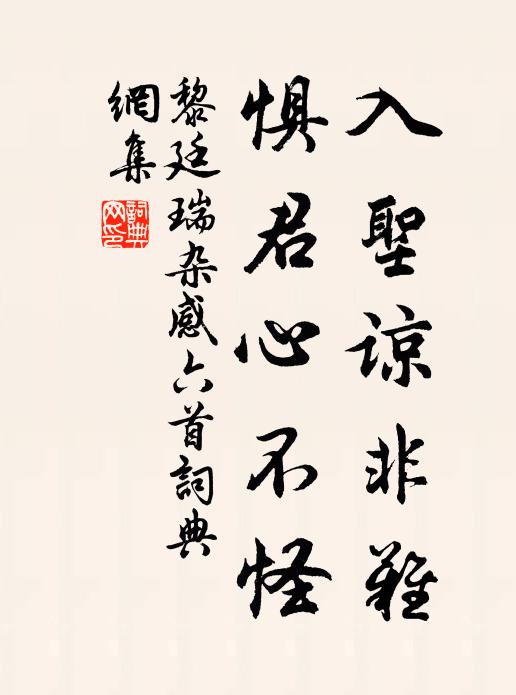 入聖諒非難
惧君心不怪
黎廷瑞杂感六首詞典
網集
詞典
网印